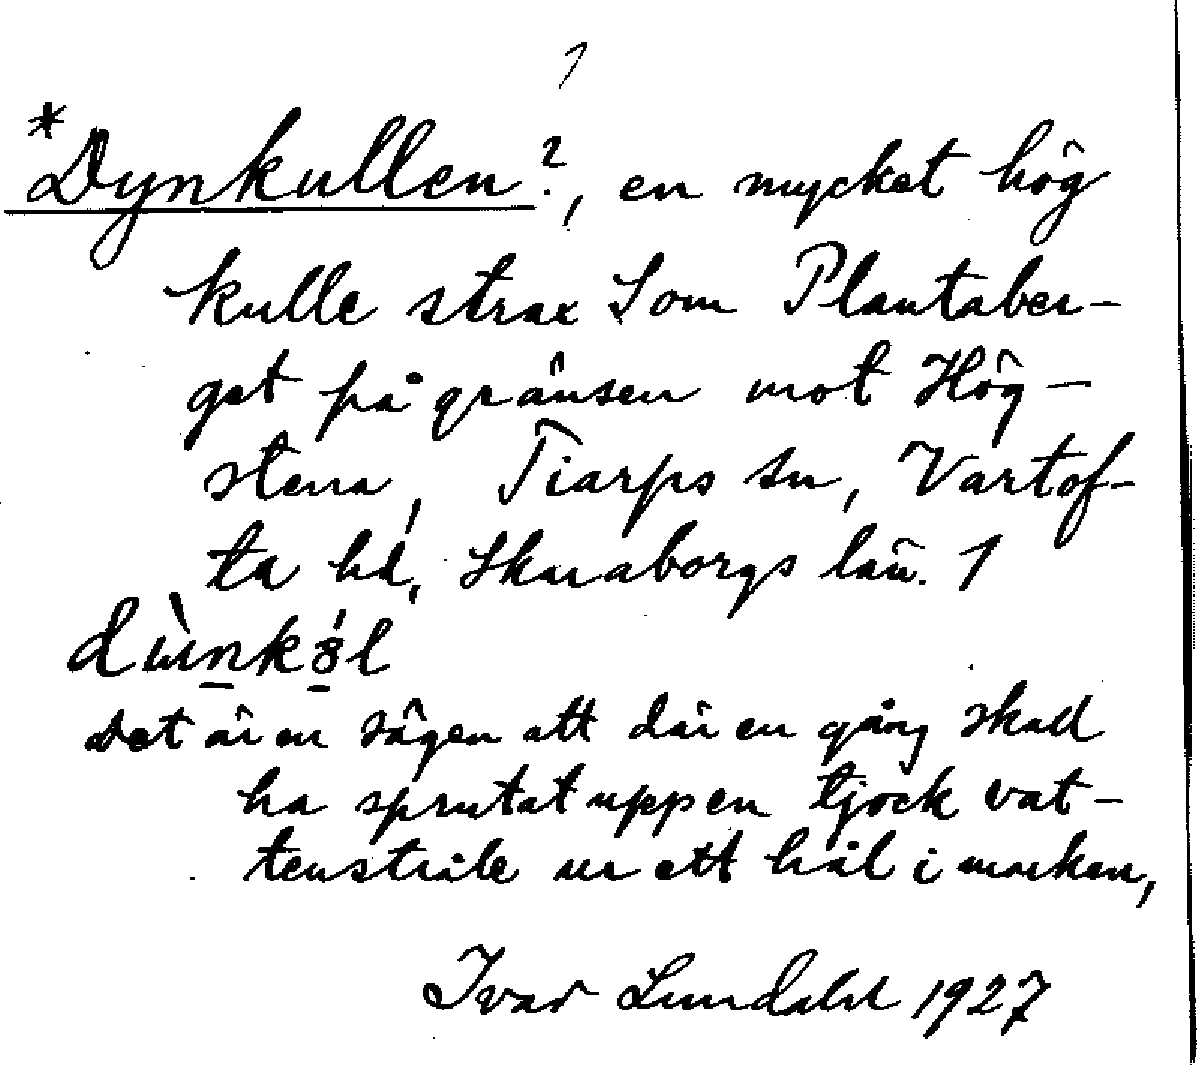 1
*Dynkullen?, en mycket hög
kulle strax S om Plantaber-
get på gränsen mot Hög-
stena, Tiarps sn, Vartof-
ta hd, Skaraborgs län. 1
Det är en sägen att där en gång skall
ha sprutat upp en tjock vat-
tenstråle ur ett hål i marken,
Ivar Lundahl 1927